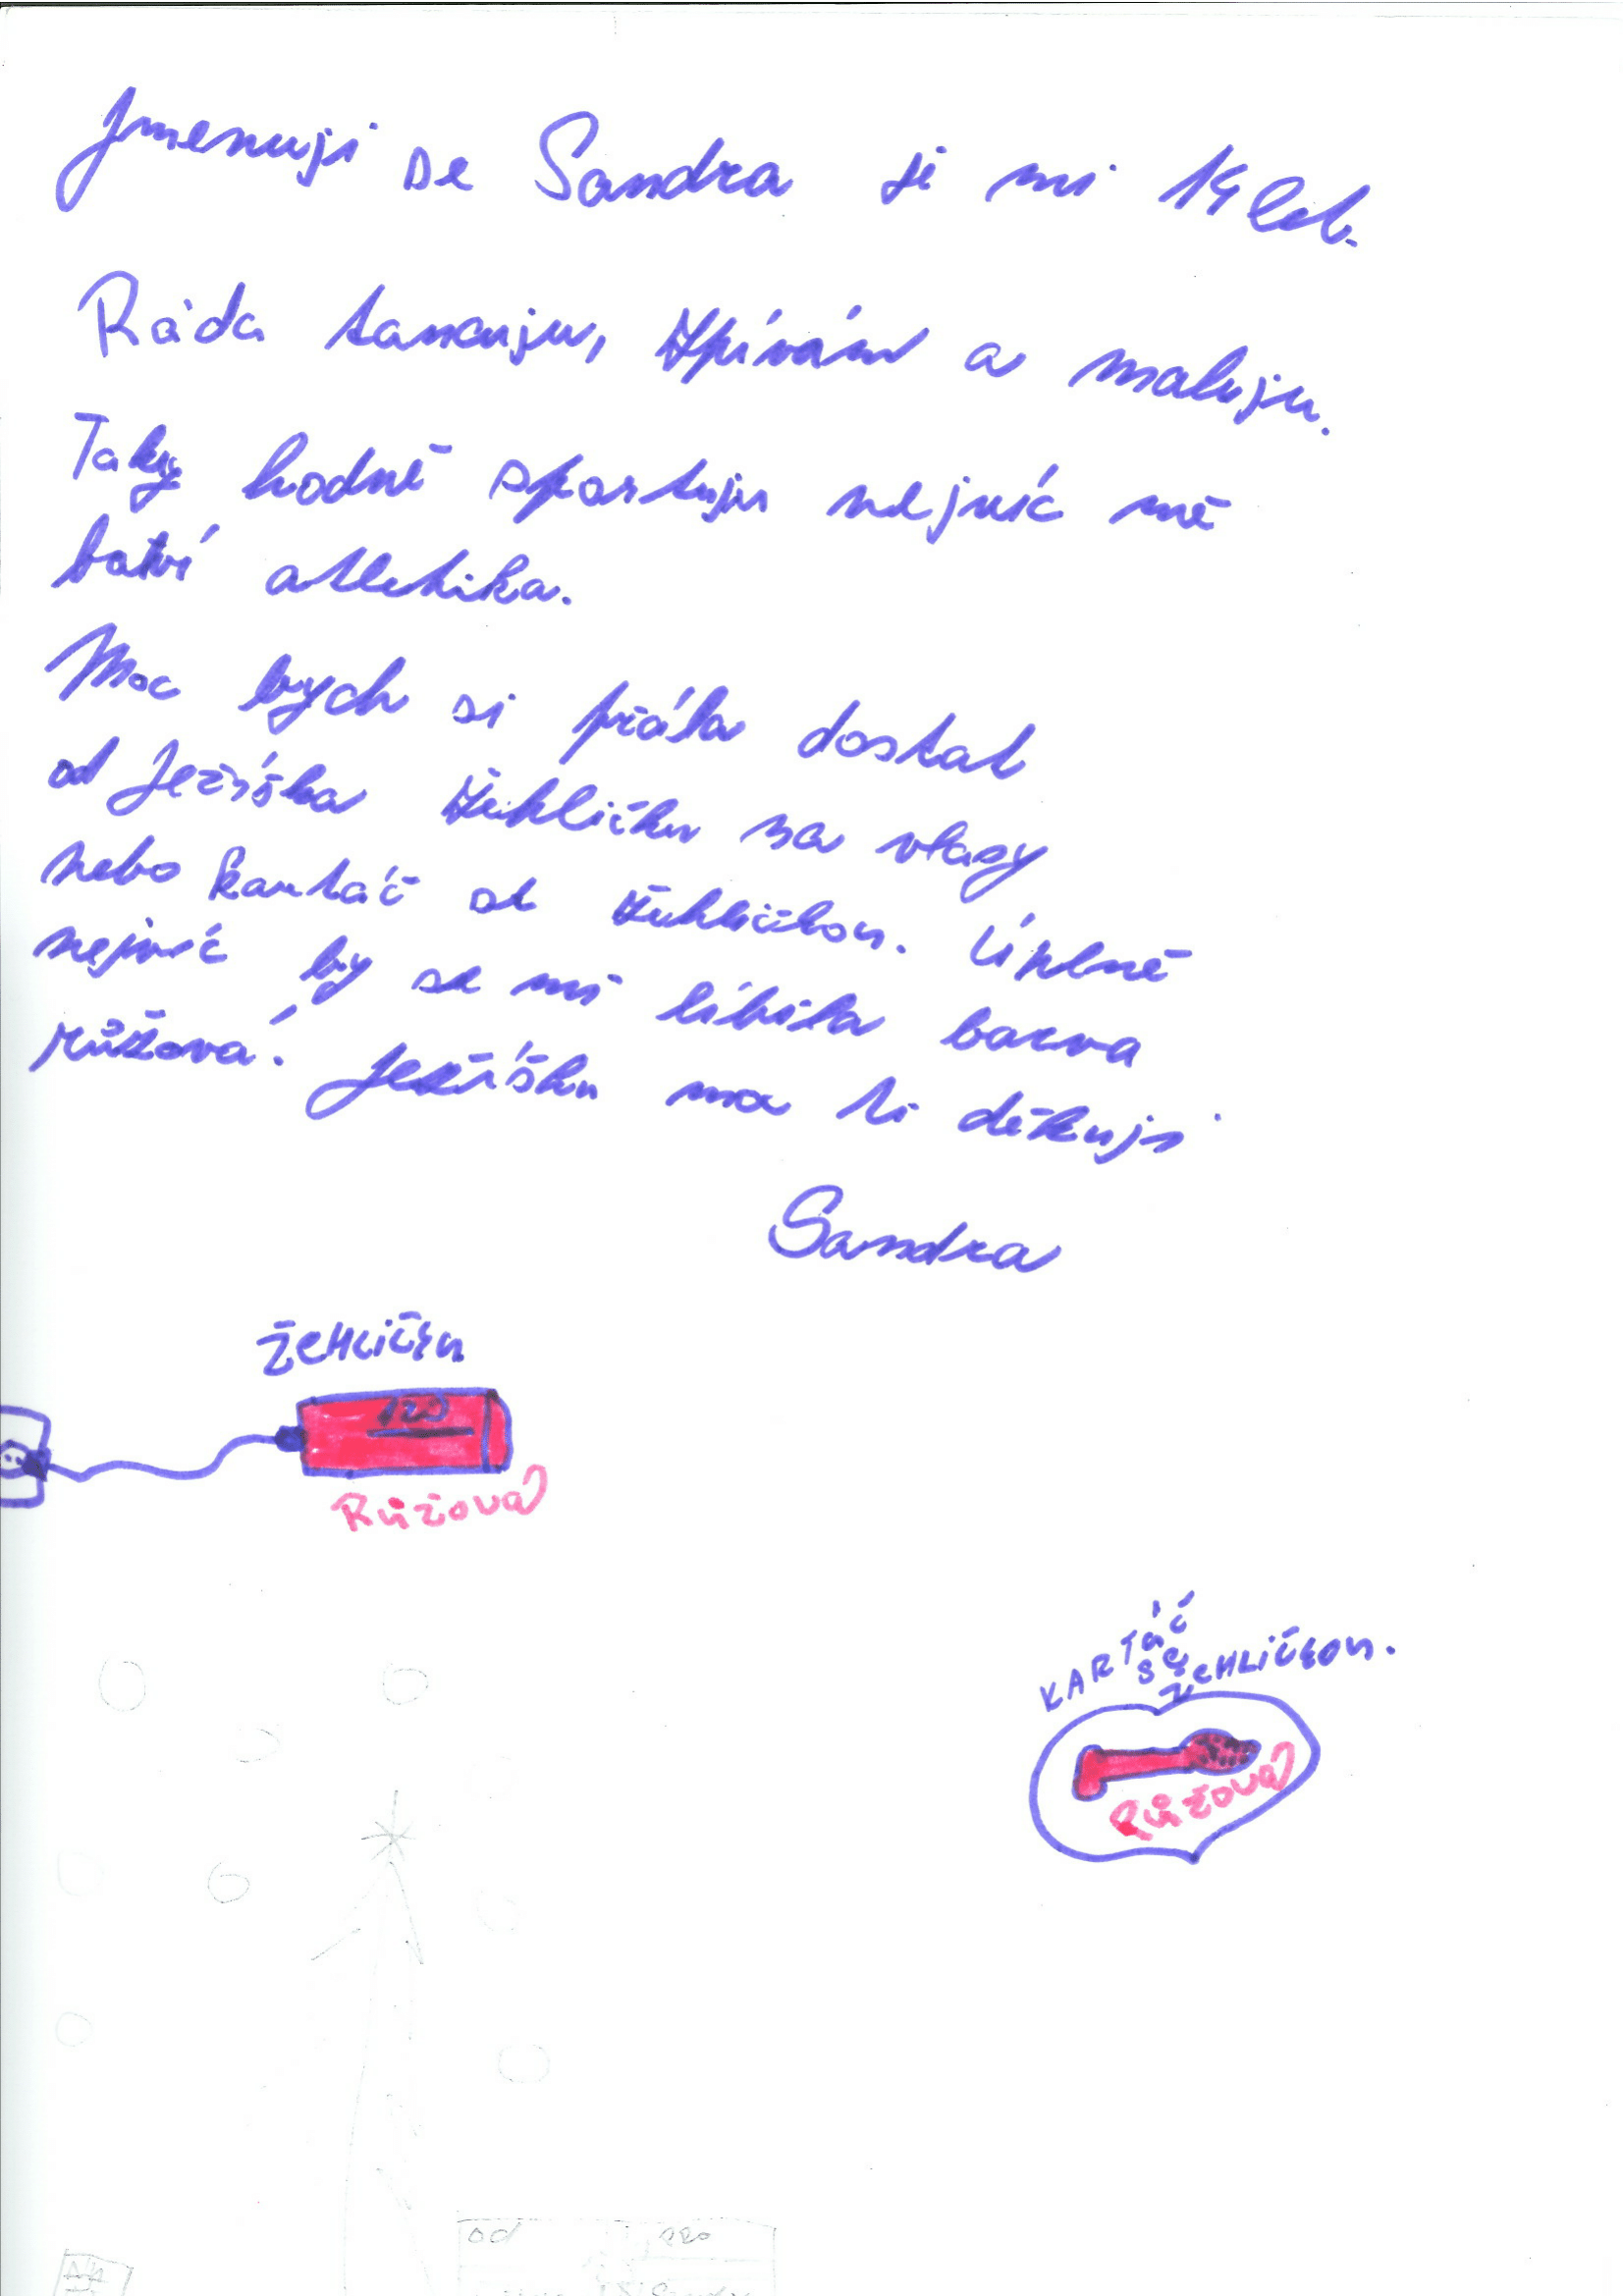 Jmenuji se Sandra je mi 14 let.
Ráda tancuju, zpívám a maluju.
Taky hodně sportuju nejvíc mě
baví atletika.
Moc bych si přála dostat
od Ježíška žehličku na vlasy
nebo kartáč se žehličkou. Úplně
nejvíc by se mi líbila barva
růžová! Ježíšku moc ti děkuji
Sandra
ŽEHLIČKU
120
Růžová
KARTÁČ
SE
ŽEHLIČKOU.
Růžová
od pro